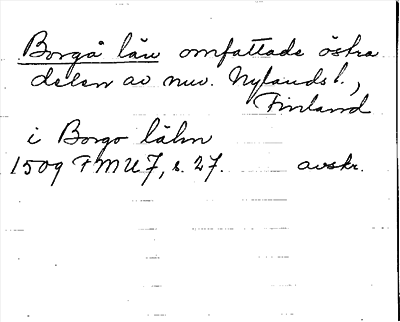 Borgå län omfattade östra
delen av nuv. Nylands l.,
Finland
i Borgo lähn
1509 FMU 7, s. 27. avskr.